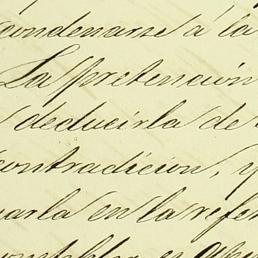 condenarse á la
La pretencion
deducirla de
contradicion, y
en la refe